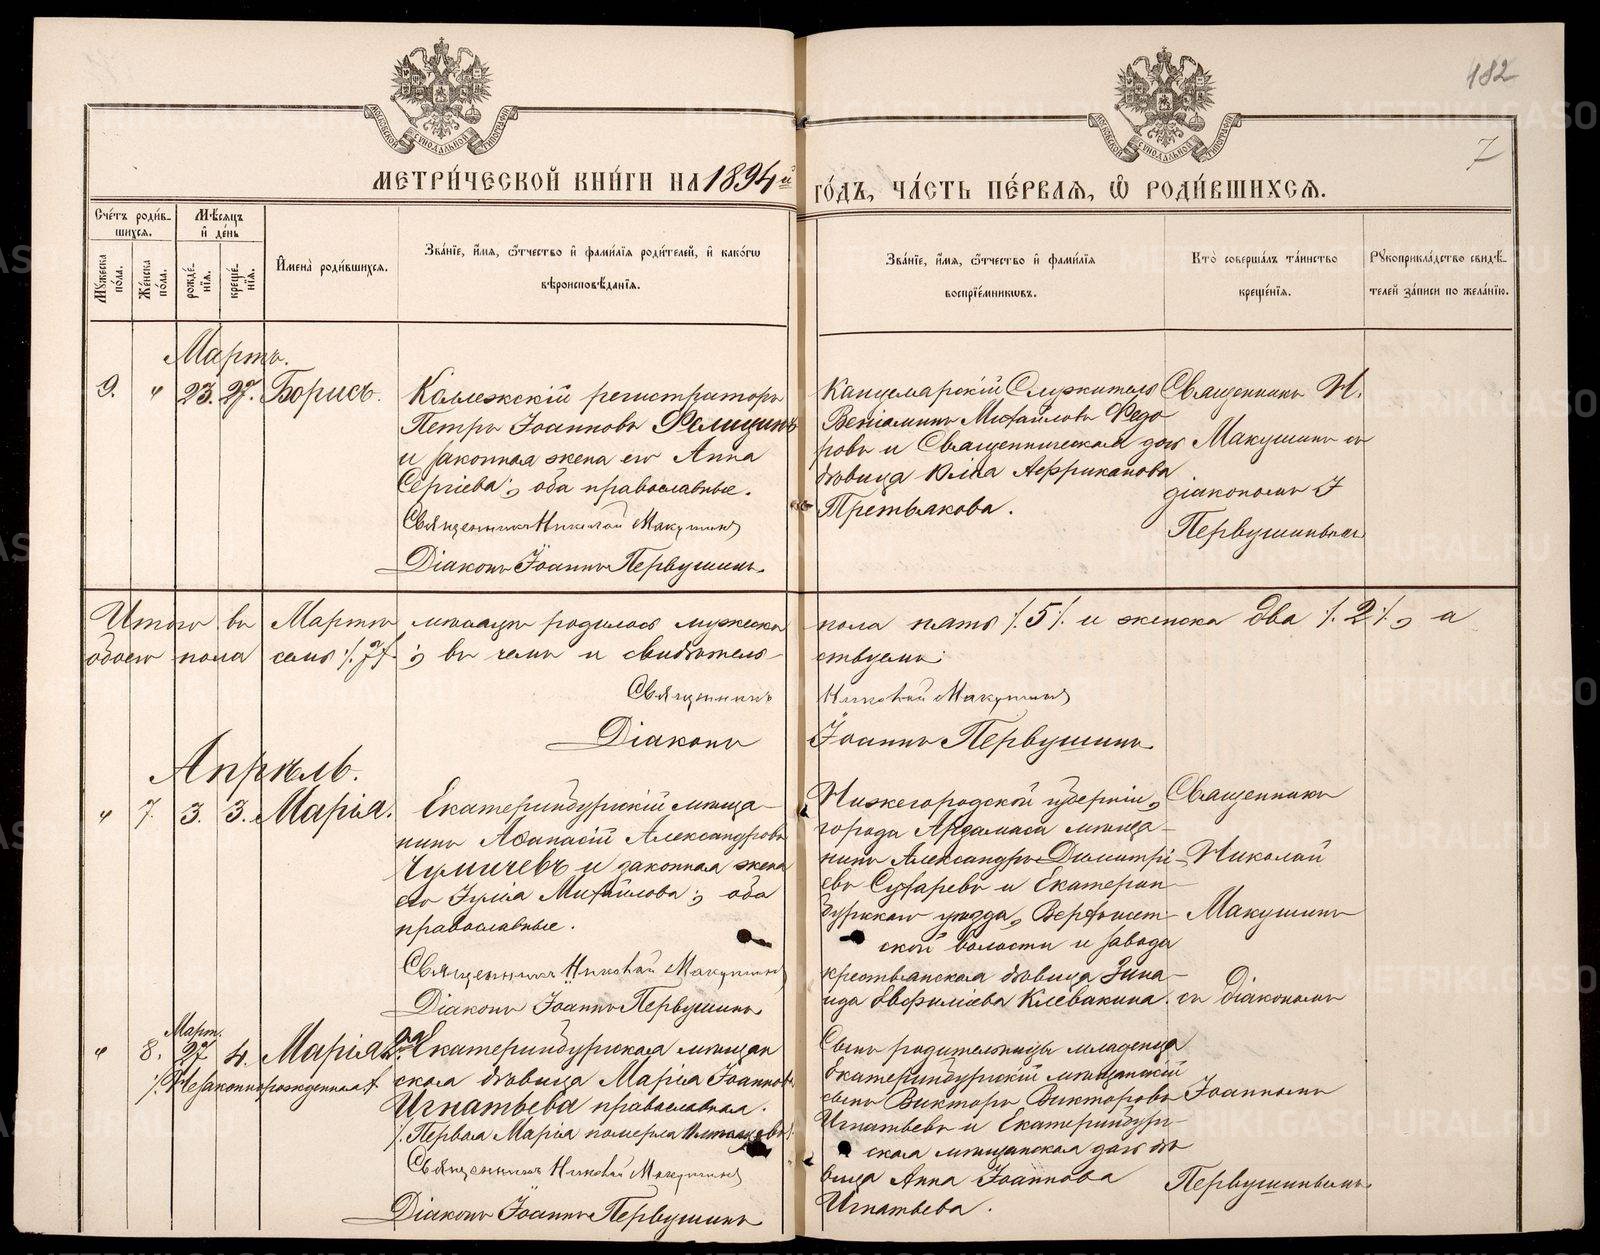 482
7
МОСКОВСКОЙ СѴНОДАЛЬНОЙ ТИПОГРАФІИ
МОСКОВСКОЙ СѴНОДАЛЬНОЙ ТИПОГРАФІИ
МЕТРИ́ЧЕСКОЙ КНИ́ГИ НА 1894й
ГО́ДЪ, ЧА́СТЬ ПЕ́РВАЯ, Ѽ РОДИ́ВШИХСЯ.
Сче́тъ роди́в-
шихся.
Мѣ́сяцъ
и҆ де́нь
Мꙋ́жеска по́ла.
Же́нска по́ла.
рожде́-
нїя.
креще́-
нїя.
И҆мена̀ роди́вшихся.
Зва́нїе, и҆́мя, ѻ҆́тчество и҆ фами́лїя роди́телей, и҆ како́гѡ
вѣроисповѣ́данїя.
Зва́нїе, и҆́мя, ѻ҆́тчество и҆ фами́лїя
воспрїе́мникѡвъ.
Кто̀ соверша́лъ та́инство
креще́нїя.
Рꙋкоприкла́дство свидѣ́-
телей за́писи по жела́нїю.
Мартъ.
9. " 23. 27. Борисъ.
Коллежскій регистраторъ
Петръ Іоанновъ Фелицинъ
и законная жена его Анна
Сергіева; оба православные.
Священникъ Николай Макушинъ
Діаконъ Іоаннъ Первушинъ.
Канцелярскій Служитель
Веніаминъ Михайловъ Федо
ровъ и Священническая дочь
дѣвица Юлія Африканова
Третьякова.
Священникъ Н.
Макушинъ съ
діакономъ І
Первушинымъ
Итого въ Мартѣ мѣсяцѣ родилось мужеска пола пять /.5./ и женска два /.2./, а
обоего пола семь /.7./; въ чемъ и свидѣтель-
ствуемъ:
Священникъ Николай Макушинъ
Діаконъ Іоаннъ Первушинъ.
Апрѣль.
" 7. 3. 3. Марія.
Екатеринбургскій мѣща-
нинъ Аѳанасій Александровъ
Чумичевъ и законная жена
его Іулія Михайлова; оба
православные.
Священникъ Николай Макушинъ
Діаконъ Іоаннъ Первушинъ.
Нижегородской губерніи,
города Ардамаса мѣща-
нинъ Александръ Димитрі-
евъ Сухаревъ и Екатерин-
бургскаго уѣзда, Верхъисет-
ской волости и завода
крестьянская дѣвица Зина-
ида Евфиміева Клевакина.
Священникъ
Николай
Макушинъ
съ Діакономъ
Март.
" 8. 27. 4. Марія 2ая
/.Незаконнорожденная./
Екатеринбургская мѣщан
ская дѣвица Марія Іоаннова
Игнатьева православная.
/.Первая Марія померла
Священникъ Николай Макушинъ
Діаконъ Іоаннъ Первушинъ
Сынъ родительницы младенца
Екатеринбургскій мѣщанскій
сынъ Викторъ Викторовъ
Игнатьевъ и Екатеринбург-
ская мѣщанская дочь дѣ
вица Анна Іоаннова
Игнатьева.
Іоанномъ
Первушинымъ.
METRIKI.GASO-URAL.RU